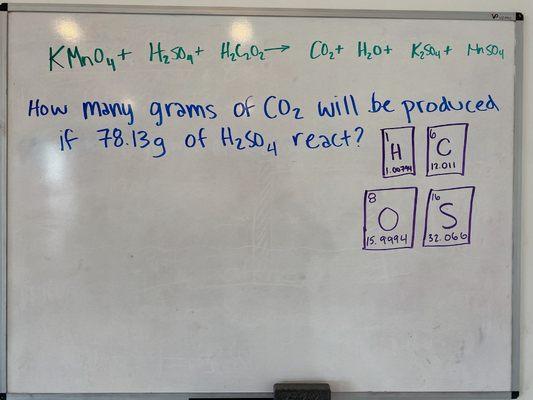 KMnO₄ + H₂SO₄ + H₂C₂O₂ → CO₂ + H₂O + K₂SO₄ + MnSO₄
How many grams of CO₂ will be produced
if 78.13g of H₂SO₄ react?
1 6
H C
1.00794 12.011
8 16
O S
15.9994 32.066